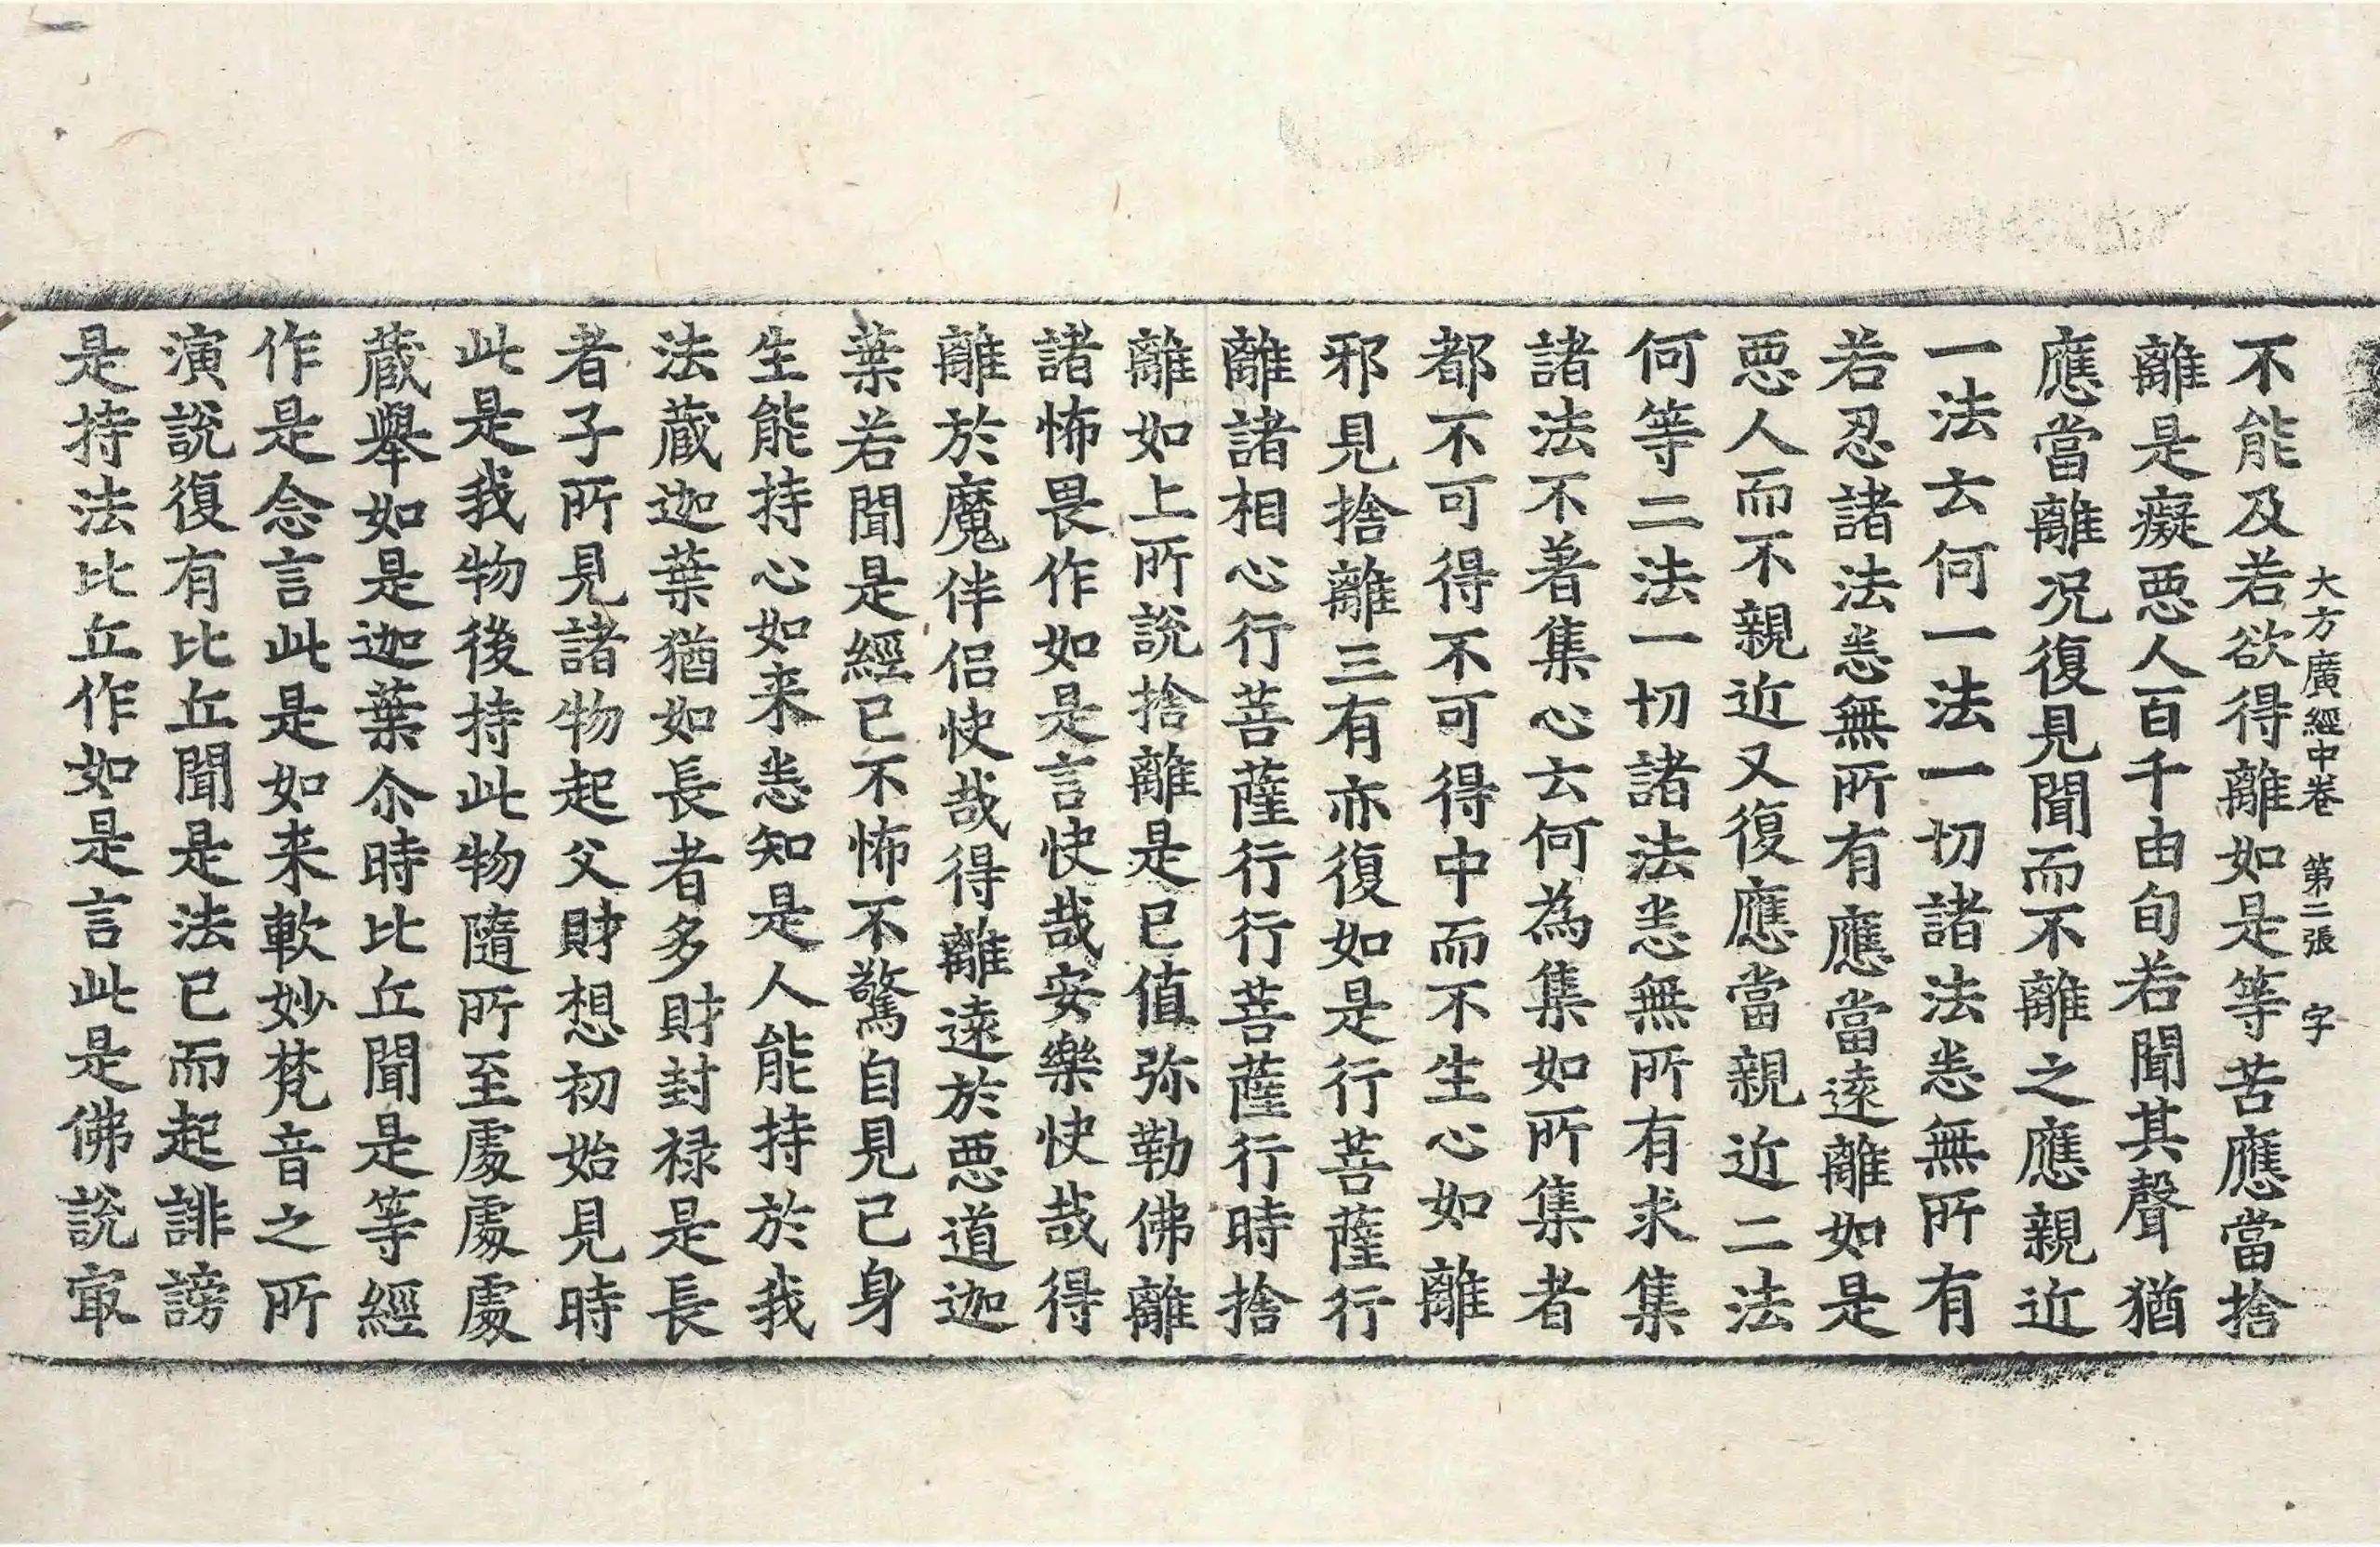 大方廣經中卷 第二張 字
不能及若欲得離如是等苦應當捨
離是癡惡人百千由旬若聞其聲猶
應當離况復見聞而不離之應親近
一法云何一法一切諸法悉無所有
若忍諸法悉無所有應當遠離如是
惡人而不親近又復應當親近二法
何等二法一切諸法悉無所有求集
諸法不著集心云何為集如所集者
都不可得不可得中而不生心如離
邪見捨離三有亦復如是行菩薩行
離諸相心行菩薩行行菩薩行時捨
離如上所說捨離是已值弥勒佛離
諸怖畏作如是言快哉安樂快哉得
離於魔伴侣快哉得離遠於惡道迦
葉若聞是經已不怖不驚自見己身
生能持心如来悉知是人能持於我
法蔵迦葉猶如長者多財封禄是長
者子所見諸物起父財想初始見時
此是我物後持此物隨所至處處處
蔵舉如是迦葉尒時比丘聞是等經
作是念言此是如来軟妙梵音之所
演說復有比丘聞是法已而起誹謗
是持法比丘作如是言此是佛說㝡